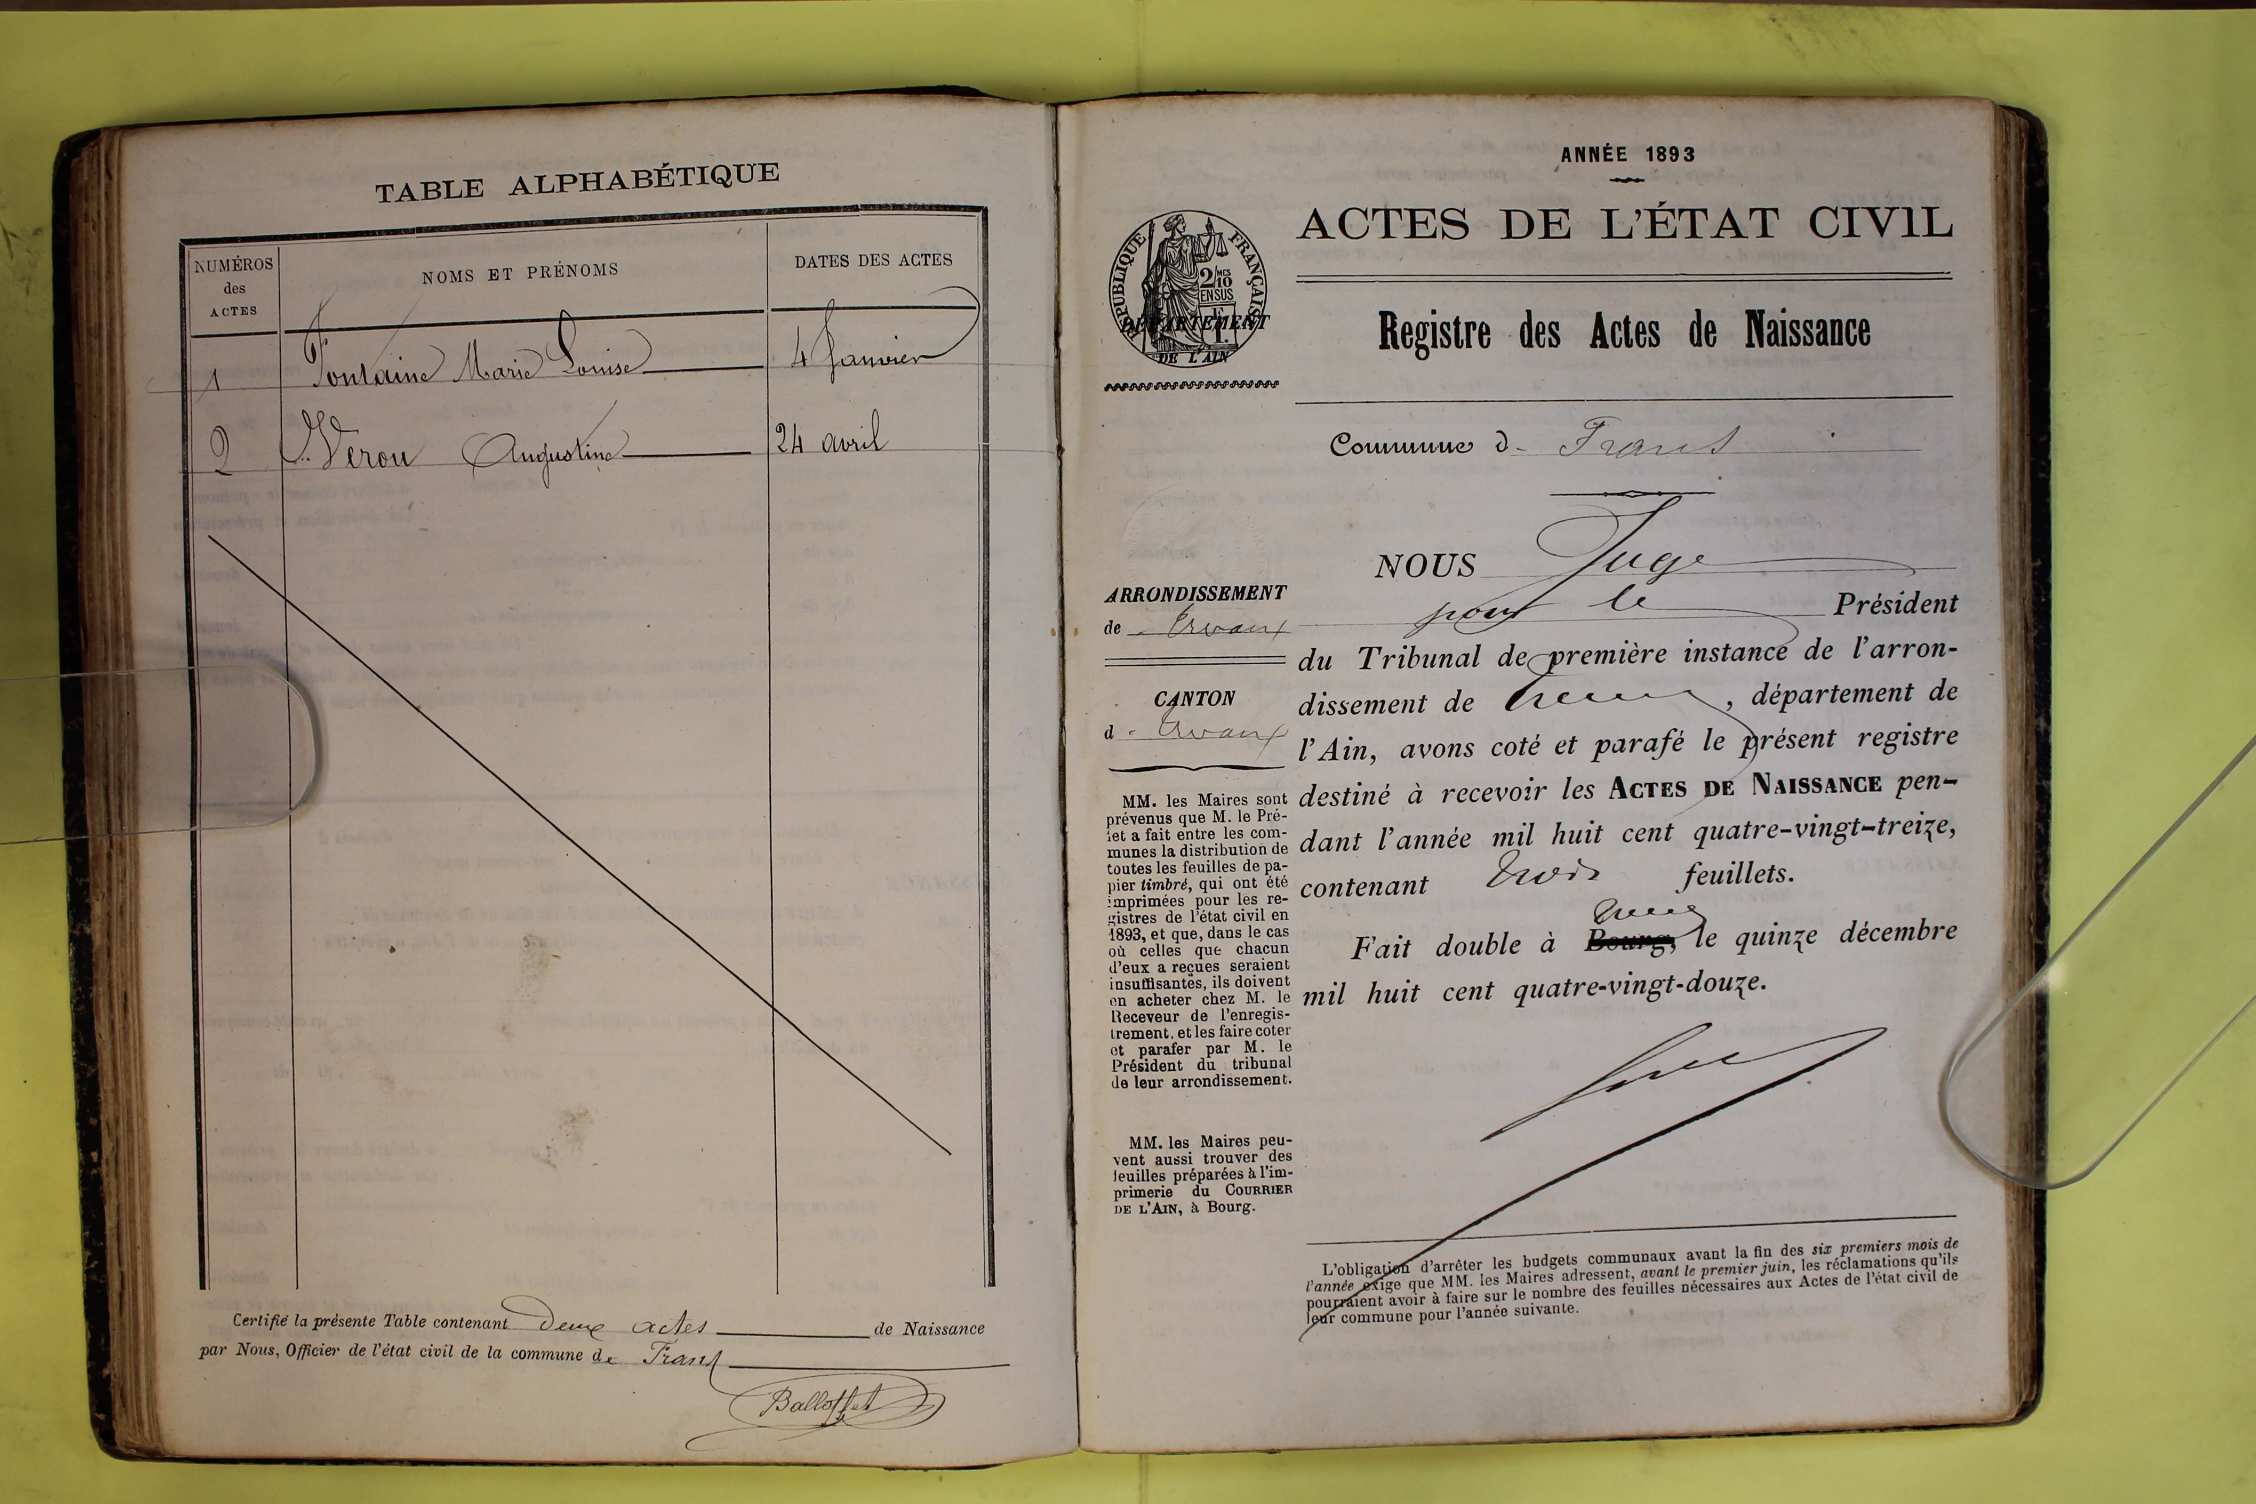 TABLE ALPHABÉTIQUE
NUMÉROS
des
ACTES
NOMS ET PRÉNOMS
DATES DES ACTES
1 Fontaine Marie Louise 4 Janvier
2 Augustine 24 avril
Certifié la présente Table contenant deux actes de Naissance
par Nous, Officier de l'état civil de la commune de Frans
Balloffet
ANNÉE 1893
ACTES DE L'ÉTAT CIVIL
RÉPUBLIQUE FRANÇAISE
2/10 MES
EN SUS
DÉPARTEMENT
DE L'AIN
Registre des Actes de Naissance
Commune d Frans
ARRONDISSEMENT
de Trévoux
CANTON
d Trévoux
MM. les Maires sont
prévenus que M. le Pré-
fet a fait entre les com-
munes la distribution de
toutes les feuilles de pa-
pier timbré, qui ont été
imprimées pour les re-
gistres de l'état civil en
1893, et que, dans le cas
où celles que chacun
d'eux a reçues seraient
insuffisantes, ils doivent
en acheter chez M. le
Receveur de l'enregis-
trement, et les faire coter
et parafer par M. le
Président du tribunal
de leur arrondissement.
MM. les Maires peu-
vent aussi trouver des
feuilles préparées à l'im-
primerie du COURRIER
DE L'AIN, à Bourg.
NOUS Juge
pour le Président
du Tribunal de première instance de l'arron-
dissement de Trévoux, département de
l'Ain, avons coté et parafé le présent registre
destiné à recevoir les ACTES DE NAISSANCE pen-
dant l'année mil huit cent quatre-vingt-treize,
contenant trois feuillets.
Trévoux
Fait double à Bourg, le quinze décembre
mil huit cent quatre-vingt-douze.
L'obligation d'arrêter les budgets communaux avant la fin des six premiers mois de
l'année exige que MM. les Maires adressent, avant le premier juin, les réclamations qu'ils
pourraient avoir à faire sur le nombre des feuilles nécessaires aux Actes de l'état civil de
leur commune pour l'année suivante.